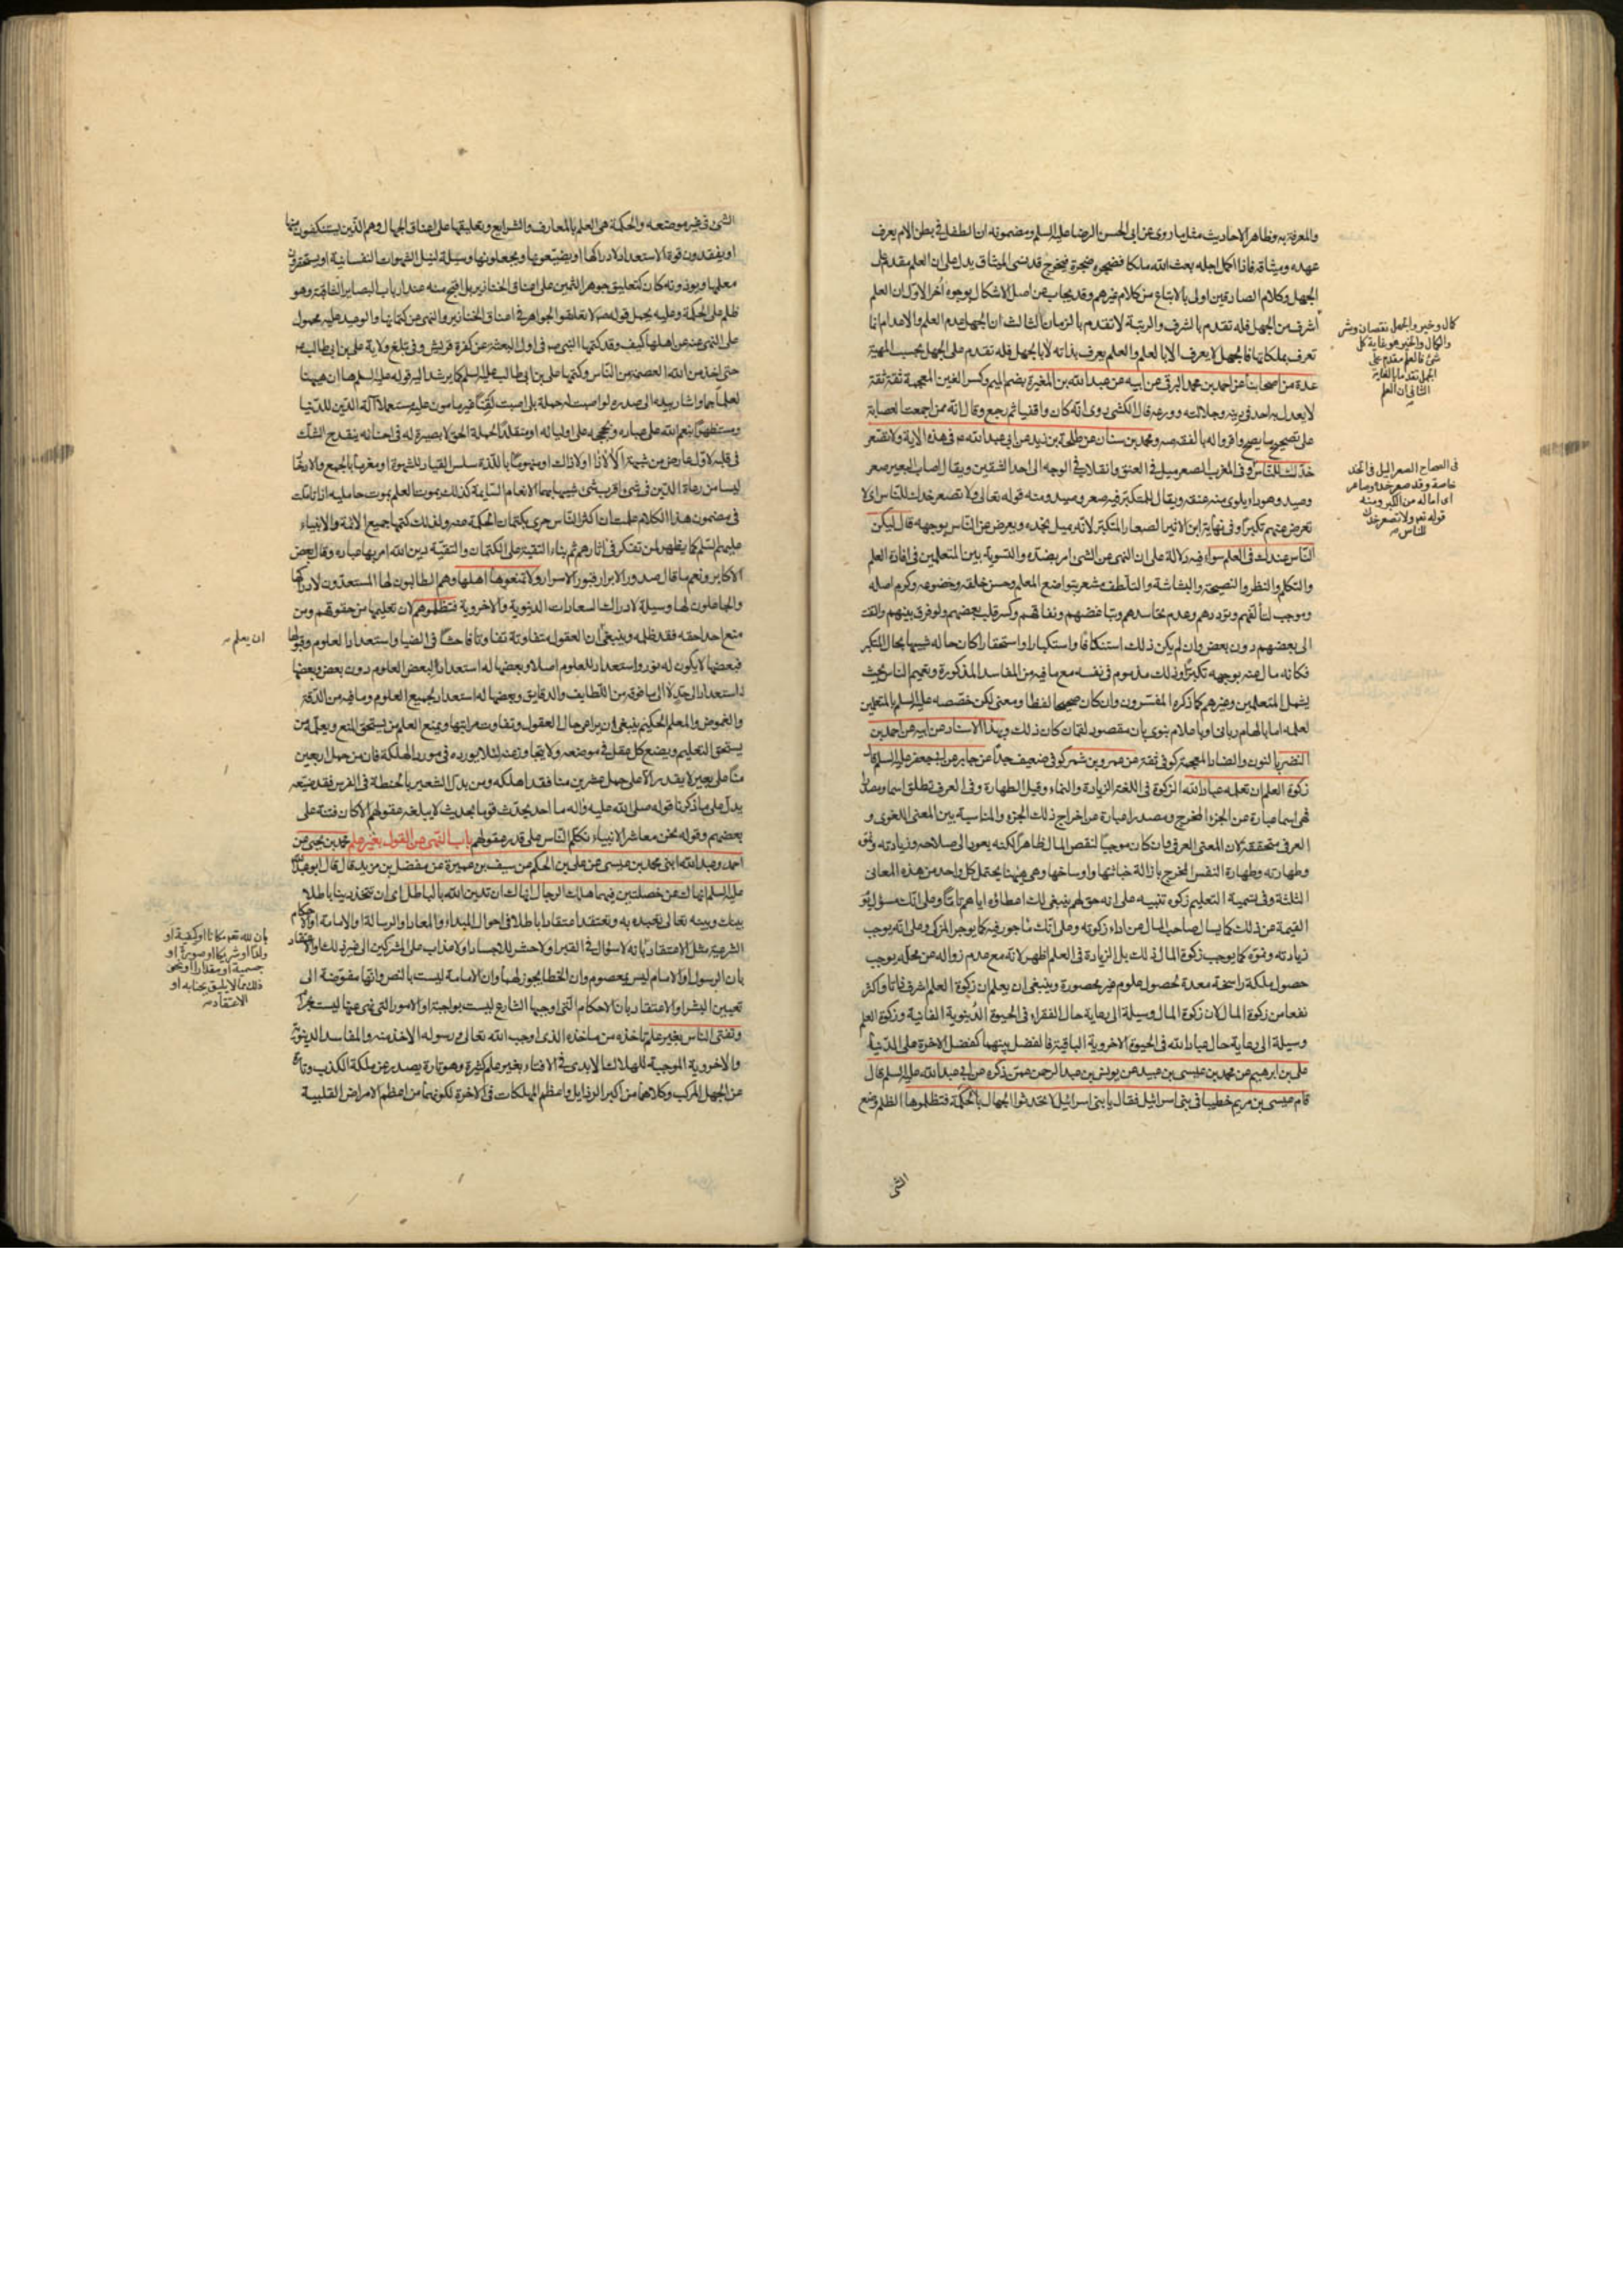 والمعرفة به وظاهر الاحاديث مثل ما روى عن ابى الحسن الرضا عليه السلم ومضمونه ان الطفل فى بطن الام يعرف
عهده وميثاقه فاذا اكمل اجله بعث الله ملكا فضجره ضجرة فيخرج قد نسى الميثاق يدل على ان العلم مقدم على
الجهل وكلام الصادقين اولى بالاتباع من كلام غيرهم وقد يجاب عن اصل الاشكال بوجوه أخر الاول ان العلم
اشرف من الجهل فله تقدم بالشرف والرتبة لا تقدم بالزمان الثالث ان الجهل عدم العلم والاعدام انما
تعرف بملكاتها فالجهل لا يعرف الا بالعلم والعلم يعرف بذاته لا بالجهل فله تقدم على الجهل بحسب المهية
عدة من اصحابنا عن احمد بن محمد البرقى عن ابيه عن عبد الله بن المغيرة بضم الميم وكسر الغين المعجمة ثقة ثقة
لا يعدل به احد فى دينه وجلالته وورعه قال الكشى روى انه كان واقفيا ثم رجع وقال انه ممن اجمعت العصابة
على تصحيح ما يصح واقروا له بالفقه ومحمد بن سنان عن طلحة بن زيد عن ابى عبد الله ع فى هذه الاية ولا تصعر
خدك للناس وفى المغرب الصعر ميل فى العنق وانقلاب فى الوجه الى احد الشقين ويقال اصاب البعير صعر
وصيد وهو داء يلوى منه عنقه ويقال للمتكبر فيه صعر وصيد ومنه قوله تعالى ولا تصعر خدك للناس اى لا
تعرض عنهم تكبرا وفى نهاية ابن الاثير الصعار المتكبر لانه يميل بخده ويعرض عن الناس بوجهه قال ليكن
الناس عندك فى العلم سواء فيه دلالة على ان النهى عن الشىء امر بضده والتسوية بين المتعلمين فى افادة العلم
والتكلم والنظر والنصيحة والبشاشة والتلطف مشعر بتواضع المعلم وحسن خلقه وخضوعه وكرم اصله
وموجب لتألفهم وتوددهم وعدم تحاسدهم وتباغضهم ونفاقهم وكسر قلب بعضهم ولو فرق بينهم والتفت
الى بعضهم دون بعض وان لم يكن ذلك استنكافا واستكبارا واستحقارا كان حاله شبيها بحال المتكبر
فكانه مال عنه بوجهه تكبرا وذلك مذموم فى نفسه مع ما فيه من المفاسد المذكورة وتعميم الناس بحيث
يشمل المتعلمين وغيرهم كما ذكره المفسرون وان كان صحيحا لفظا ومعنى لكن خصصه عليه السلم بالمتعلمين
لعلمه اما بالهام ربانى او باعلام نبوى بان مقصود لقمان كان ذلك وبهذا الاسناد عن ابيه عن احمد بن
النضر بالنون والضاد المعجمة كوفى ثقة عن عمرو بن شمر كوفى ضعيف جدا عن جابر عن ابى جعفر عليه السلم قال
زكوة العلم ان تعلمه عباد الله الزكوة فى اللغة الزيادة والنماء وقيل الطهارة وفى العرف تطلق اسما ومصدرا
فهى اسما عبارة عن الجزء المخرج ومصدرا عبارة عن اخراج ذلك الجزء والمناسبة بين المعنى اللغوى و
العرفى متحققة لان المعنى العرفى وان كان موجبا لنقص المال ظاهرا لكنه يعود الى صلاحه وزيادته ونموه
وطهارته وطهارة النفس المخرج بازالة خباثتها واوساخها وهى ههنا يحتمل كل واحد من هذه المعانى
الثلثة وفى تسمية التعليم زكوة تنبيه على انه حق لهم ينبغى لك اعطاؤه اياهم تاما وعلى انك مسؤل يوم
القيمة عن ذلك كما يسال صاحب المال عن اداء زكوته وعلى انك مأجور فيه كما يوجر المزكى وعلى انه يوجب
زيادته ونموه كما يوجب زكوة المال ذلك بل الزيادة فى العلم اظهر لانه مع عدم زواله عن محله يوجب
حصول ملكة راسخة معدة لحصول علوم غير محصورة وينبغى ان يعلم ان زكوة العلم اشرف ذاتا واكثر
نفعا من زكوة المال لان زكوة المال وسيلة الى رعاية حال الفقراء فى الحيوة الدنيوية الفانية وزكوة العلم
وسيلة الى رعاية حال عباد الله فى الحيوة الاخروية الباقية فالفضل بينهما كفضل الاخرة على الدنيا
على بن ابرهيم عن محمد بن عيسى بن عبيد عن يونس بن عبد الرحمن عمن ذكره عن ابى عبد الله عليه السلم قال
قام عيسى بن مريم خطيبا فى بنى اسرائيل فقال يا بنى اسرائيل لا تحدثوا الجهال بالحكمة فتظلموها الظلم وضع
الشى
كمال وخير والجهل نقصان وشر
والكمال والخير هو غاية كل
شىء فالعلم مقدم على
الجهل تقدما بالغاية
الثانى ان العلم
فى الصحاح الصعر الميل فى الخد
خاصة وقد صعر خده وصاعر
اى اماله من الكبر ومنه
قوله تعم ولا تصعر خدك
للناس
الشىء فى غير موضعه والحكمة هى العلم بالمعارف والشرايع وتعليقها على اعناق الجهال وهم الذين يستنكفون منها
او يفقدون قوة الاستعداد لادراكها او يضيعونها ويجعلونها وسيلة لنيل الشهوات النفسانية او يستحقرون
معلمها ويوذونه كان كتعليق جوهر الثمين على اعناق الخنازير بل اقبح منه عند ارباب البصاير الثاقبة وهو
ظلم على الحكمة وعليه يحمل قوله ص لا تعلقوا الجواهر فى اعناق الخنازير والنهى عن كتمانها والوعيد عليه محمول
على النهى عنه عن اهلها كيف وقد كتمها النبى ص فى اول البعثة عن كفرة قريش وفى تبلغ ولاية على بن ابى طالب ع
حتى اخذ من الله العصمة من الناس وكتمها على بن ابى طالب عليه السلم كما يرشد اليه قوله عليه السلم ها ان ههنا
لعلما جما واشار بيده الى صدره لو اصبت له حملة بلى اصبت لقنا غير مامون عليه مستعملا آلة الدين للدنيا
ومستظهرا بنعم الله على عباده وبحججه على اوليائه او منقلدا لحملة الحق لا بصيرة له فى احنائه ينقدح الشك
فى قلبه لاول عارض من شبهة الا لا ذا ولا ذاك او منهوما باللذة سلس القياد للشهوة او مغرما بالجمع والادخار
ليسا من رعاة الدين فى شىء اقرب شىء شبها بهما الانعام السايمة كذلك يموت العلم بموت حامليه اذا تاملت
فى مضمون هذا الكلام علمت ان اكثر الناس حرى بكتمان الحكمة عنه ولذلك كتمها جميع الائمة والانبياء
عليهم السلم كما يظهر لمن تفكر فى اثارهم ثم بناء التقية على الكتمان والتقية دين الله امر بها عباده وقال بعض
الاكابر ونعم ما قال صدور الابرار قبور الاسرار ولا تمنعوها اهلها وهم الطالبون لها المستعدون لادراكها
والجاعلون لها وسيلة لادراك السعادات الدنيوية والاخروية فتظلموهم لان تعليمها من حقوقهم ومن
منع احدا حقه فقد ظلمه وينبغى أن العقول متفاوتة تفاوتا فاحشا فى الضياء واستعداد العلوم وقبولها
فبعضها لا يكون له نور واستعداد للعلوم اصلا وبعضها له استعداد لبعض العلوم دون بعض وبعضها
له استعداد الى حد لا الى ما فوقه من اللطايف والدقايق وبعضها له استعداد لجميع العلوم وما فيه من الدقة
والغموض والمعلم الحكيم ينبغى ان يراعى حال العقول وتفاوت مراتبها ويمنع العلم من يستحق المنع ويعلمه من
يستحق التعليم ويضع كل عقل فى موضعه ولا يتجاوز عنه لئلا يورده فى مورد الهلكة فان من حمل اربعين
منا على بعير لا يقدر الا على حمل عشرين منا فقد اهلكه ومن بدل الشعير بالحنطة فى الفرس فقد ضيعه
يدل على ما ذكرنا قوله صلى الله عليه وآله ما احد يحدث قوما بحديث لا يبلغه عقولهم الا كان فتنة على
بعضهم وقوله نحن معاشر الانبياء نكلم الناس على قدر عقولهم باب النهى عن القول بغير علم محمد بن يحيى عن
احمد وعبد الله ابنى محمد بن عيسى عن على بن الحكم عن سيف بن عميرة عن مفضل بن مزيد قال قال ابو عبد الله
عليه السلم انهاك عن خصلتين فيهما هلاك الرجال انهاك ان تدين الله بالباطل اى ان تتخذ دينا باطلا
بينك وبينه تعالى تعبده به وتعتقد اعتقادا باطلا فى احوال المبداء والمعاد او الرسالة او الامامة او الاحكام
الشرعية مثل الاعتقاد بانه لا سؤال فى القبر او لا حشر للاجساد او لا عذاب على المشركين الى غير ذلك والاعتقاد
بان الرسول او الامام ليس بمعصوم وان الخطا يجوز لهما وان الامامة ليست بالنص وانها مفوضة الى
تعيين البشر او الاعتقاد بان الاحكام التى اوجبها الشارع ليست بواجبة او الامور التى نهى عنها ليست بحرام
وتفتى الناس بغير علم تاخذه من ماخذه الذى اوجب الله تعالى ورسوله الاخذ منه والمفاسد الدينوية
والاخروية الموجبة للهلاك الابدى فى الافتاء بغير علم كثيرة وهو تارة يصدر عن ملكة الكذب وتارة
عن الجهل المركب وكلاهما من أكبر الرذايل واعظم المهلكات فى الاخرة لكونهما من اعظم الامراض القلبية
ان يعلم
بان لله تعم مكانا او كيفية او
ولدا او شريكا او صورة او
جسمية او مقدارا او نحو
ذلك مما لا يليق بجنابه او
الاعتقاد